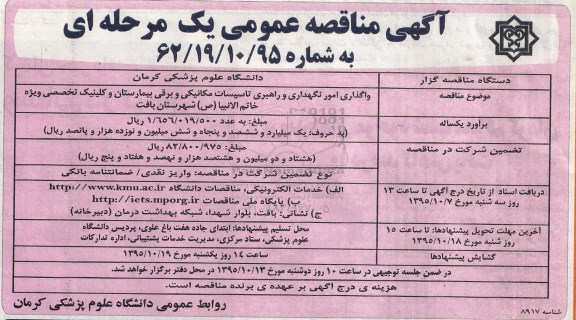 آگهی مناقصه عمومی یک مرحله ای
به شماره ۶۲/۱۹/۱۰/۹۵
دستگاه مناقصه گزار
دانشگاه علوم پزشکی کرمان
موضوع مناقصه
واگذاری امور نگهداری و راهبری تاسیسات مکانیکی و برقی بیمارستان و کلینیک تخصصی ویژه
خاتم الانبیا (ص) شهرستان بافت
برآورد یکساله
مبلغ: به عدد ۱/۶۵۶/۰۱۹/۵۰۰ ریال
(به حروف: یک میلیارد و ششصد و پنجاه و شش میلیون و نوزده هزار و پانصد ریال)
تضمین شرکت در مناقصه
مبلغ: ۸۲/۸۰۰/۹۷۵ ریال
(هشتاد و دو میلیون و هشتصد هزار و نهصد و هفتاد و پنج ریال)
نوع تضمین شرکت در مناقصه: واریز نقدی/ ضمانتنامه بانکی
دریافت اسناد از تاریخ درج آگهی تا ساعت ۱۳
روز سه شنبه مورخ ۱۳۹۵/۱۰/۷
الف) خدمات الکترونیکی، مناقصات دانشگاه http://www.kmu.ac.ir
ب) پایگاه ملی مناقصات http://iets.mporg.ir
ج) نشانی: بافت، بلوار شهدا، شبکه بهداشت درمان (دبیرخانه)
آخرین مهلت تحویل پیشنهادها: تا ساعت ۱۵
روز شنبه مورخ ۱۳۹۵/۱۰/۱۸
محل تسلیم پیشنهادها: ابتدای جاده هفت باغ علوی، پردیس دانشگاه
علوم پزشکی، ستاد مرکزی، مدیریت خدمات پشتیبانی، اداره تدارکات
گشایش پیشنهادها
ساعت ۱۴ روز یکشنبه مورخ ۱۳۹۵/۱۰/۱۹
در ضمن جلسه توجیهی در ساعت ۱۰ روز دوشنبه مورخ ۱۳۹۵/۱۰/۱۳ در محل دفتر برگزار خواهد شد.
هزینه ی درج آگهی بر عهده ی برنده مناقصه است.
روابط عمومی دانشگاه علوم پزشکی کرمان
شناسه ۸۹۱۷